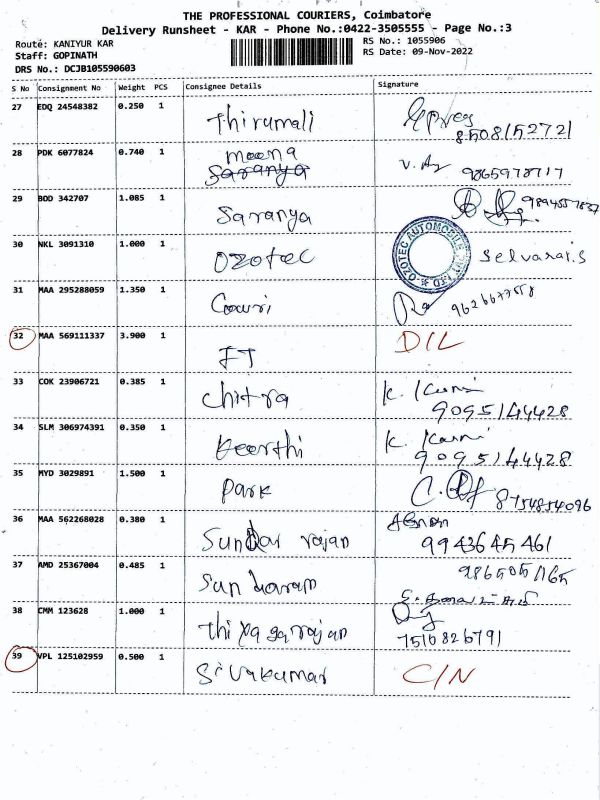 THE PROFESSIONAL COURIERS, Coimbatore
Delivery Runsheet - KAR - Phone No.:0422-3505555 - Page No.:3
Route: KANIYUR KAR
RS No.: 1055906
Staff: GOPINATH
RS Date: 09-Nov-2022
DRS No.: DCJB105590603
S No Consignment No Weight PCS Consignee Details Signature
27 EDQ 24548382 0.250 1 Thirumali
8508152721
28 PDK 6077824 0.740 1 meena
Saranya 9865978717
29 BOD 342707 1.085 1 Saranya
30 NKL 3091310 1.000 1 Ozotec Selvaraj.S
OZOTEC AUTOMOBILE
31 MAA 295288059 1.350 1 Gowri
32 MAA 569111337 3.900 1 IT D/L
33 COK 23906721 0.385 1 Chitra K.
9095144428
34 SLM 306974391 0.350 1 Keerthi K.
9095144428
35 MYD 3029891 1.500 1 Park
8754854096
36 MAA 562268028 0.380 1 Sundar rajan
9943645461
37 AMD 25367004 0.485 1 Sundaram
38 CMM 123628 1.000 1 Thiyagarajan
7510826791
39 VPL 125102959 0.500 1 Sivakumar C/N